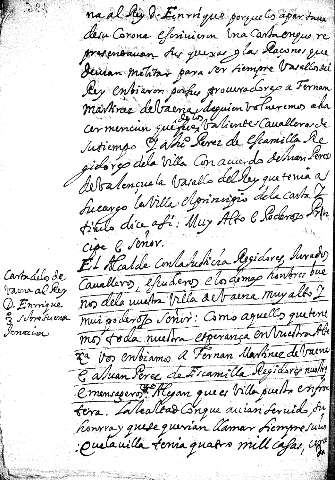 na al Rey D. Enrrique porque los apartava
de su Corona escrivieron una Carta en que re
presentavan sus quexas y las Raçones que
devian militar para ser siempre Vasallos del
Rey enbiaron por sus procuradores a Fernan
Martinez de Vaena de quien volveremos a ha
cer mencion que fue de los Valientes Cavalleros de
su tiempo y a Juº Perez de Escamilla Re
gidores de la Villa con acuerdo de Juan Perez
de Valençuela Vasallo del Rey que tenia a
su cargo la Villa el principio de la carta y
titulo dice asi: Muy Alto e Poderoso Prin
cipe e Señor.
El Alcalde con la Justicia Regidores, Jurados,
Cavalleros, escuderos e los omes honrres bue
nos de la vuestra Villa de Vaena muy alto y
mui poderoso Señor: Como aquellos que tene
mos toda nuestra esperança en vuestra Alte
za vos enbiamos a Fernan Martinez de Vaena
e a Juan Perez de Escamilla Regidores nuestros
e mensageros. Alegan que es Villa puesta en fron
tera. La lealtad con que avian servido, su
honrra y que se querian llamar siempre suios
Que la villa tenia quatro mill casas,
Carta de los de
Vaena al Rey
D. Enrrique
sobre su ena
genacion